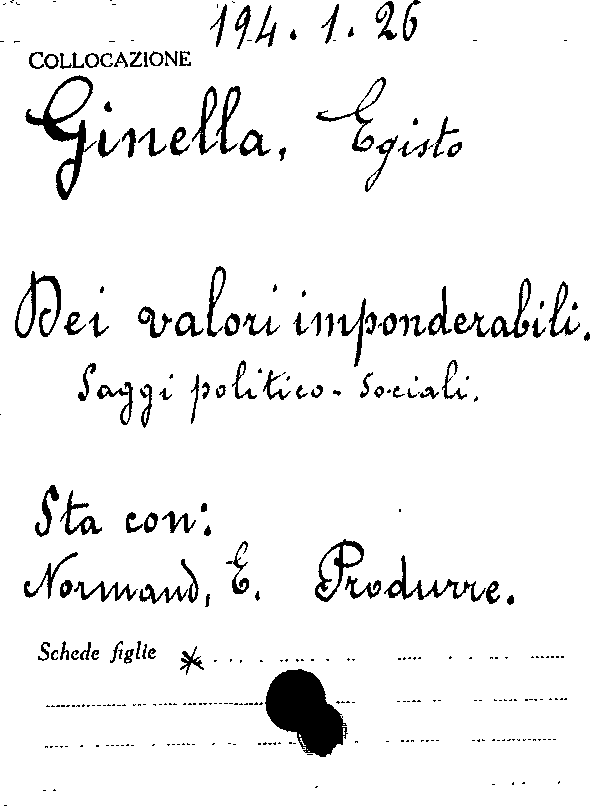 194.1.26
COLLOCAZIONE
Ginella, Egisto
Dei valori imponderabili.
Saggi politico-sociali.
Sta con:
Normand, E. Produrre.
Schede figlie *